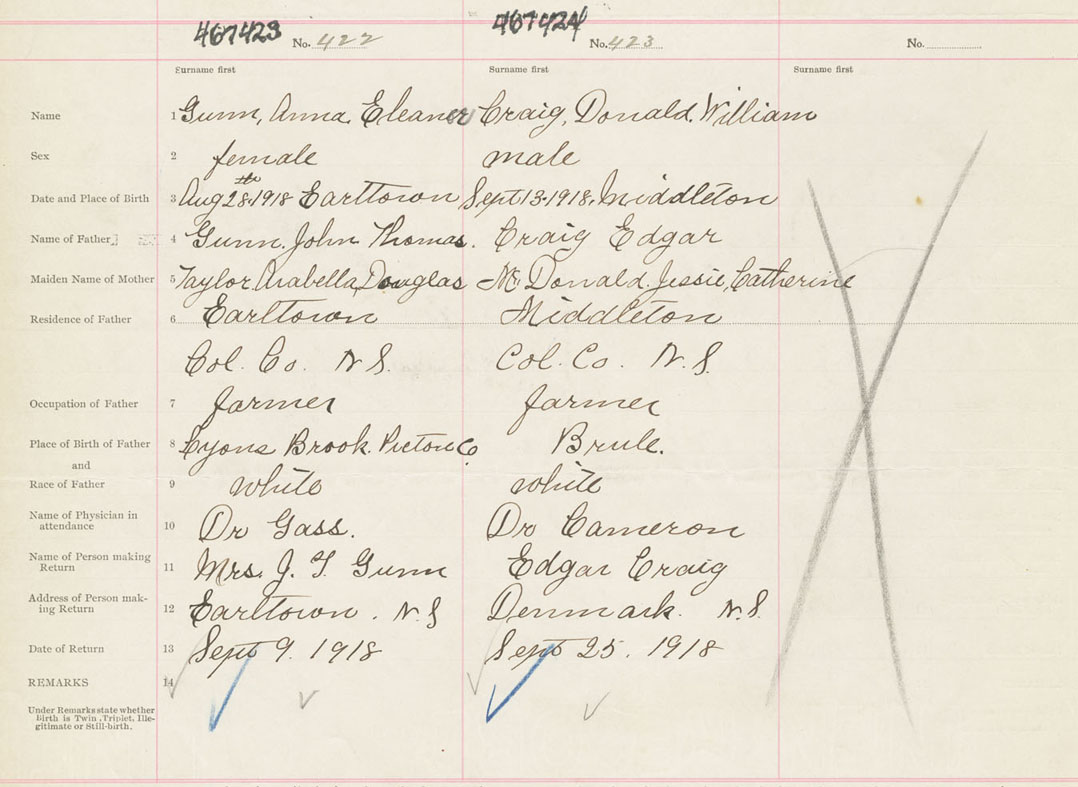 467423 467424
No. 422 No. 423 No.
Surname first Surname first Surname first
Name 1 Gunn, Anna, Eleanor Craig, Donald, William
Sex 2 female male
Date and Place of Birth 3 Aug 28th 1918 Earltown Sept 13-1918, Middleton
Name of Father 4 Gunn, John Thomas. Craig Edgar
Maiden Name of Mother 5 Taylor Arabella, Douglas Mc Donald, Jessie, Catherine
Residence of Father 6 Earltown Middleton
Col. Co. N S. Col. Co. N.S.
Occupation of Father 7 farmer farmer
Place of Birth of Father 8 Lyons Brook. Pictou Co Brule.
and
Race of Father 9 white white
Name of Physician in
attendance 10 Dr Gass. Dr Cameron
Name of Person making
Return 11 Mrs. J. T. Gunn Edgar Craig
Address of Person mak-
ing Return 12 Earltown. N.S Denmark. N.S.
Date of Return 13 Sept 9. 1918 Sept 25. 1918
REMARKS 14
Under Remarks state whether
birth is Twin, Triplet, Ille-
gitimate or Still-birth.